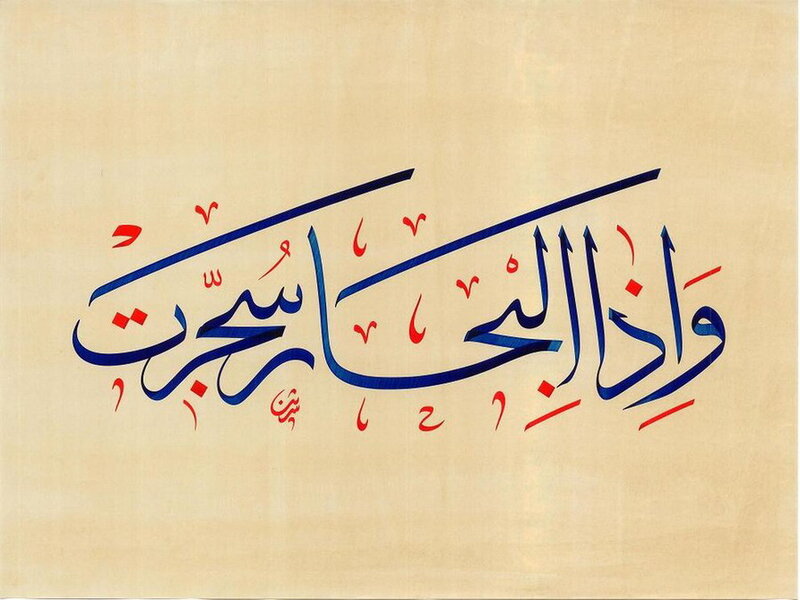 وَإِذَا الْبِحَارُ سُجِّرَتْ